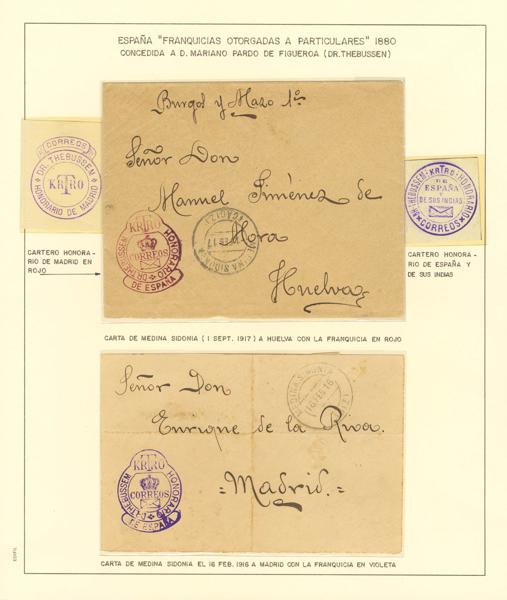 ESPAÑA "FRANQUICIAS OTORGADAS A PARTICULARES" 1880
CONCEDIDA A D. MARIANO PARDO DE FIGUEROA (DR. THEBUSSEN)
Burgol y Mazo 1º
Señor Don
Manuel Jiménez de
Mora
Huelva
CORREOS
DR. THEBUSSEN
KRTRO
HONORARIO DE MADRID
CARTERO HONORA-
RIO DE MADRID EN
ROJO
KRTRO
HONORARIO
CORREOS
DR. THEBUSSEN
DE ESPAÑA
MEDINA SIDONIA
(CADIZ)
THEBUSSEN KRTRO HONORARIO
DE
ESPAÑA
Y
DE SUS INDIAS
CORREOS
CARTERO HONORA-
RIO DE ESPAÑA Y
DE SUS INDIAS
CARTA DE MEDINA SIDONIA (1 SEPT. 1917) A HUELVA CON LA FRANQUICIA EN ROJO
Señor Don
Enrique de la Riva.
=Madrid.=
16 FEB 16
KRTRO
HONORARIO
CORREOS
DR. THEBUSSEN
DE ESPAÑA
CARTA DE MEDINA SIDONIA EL 16 FEB. 1916 A MADRID CON LA FRANQUICIA EN VIOLETA
EDIFIL